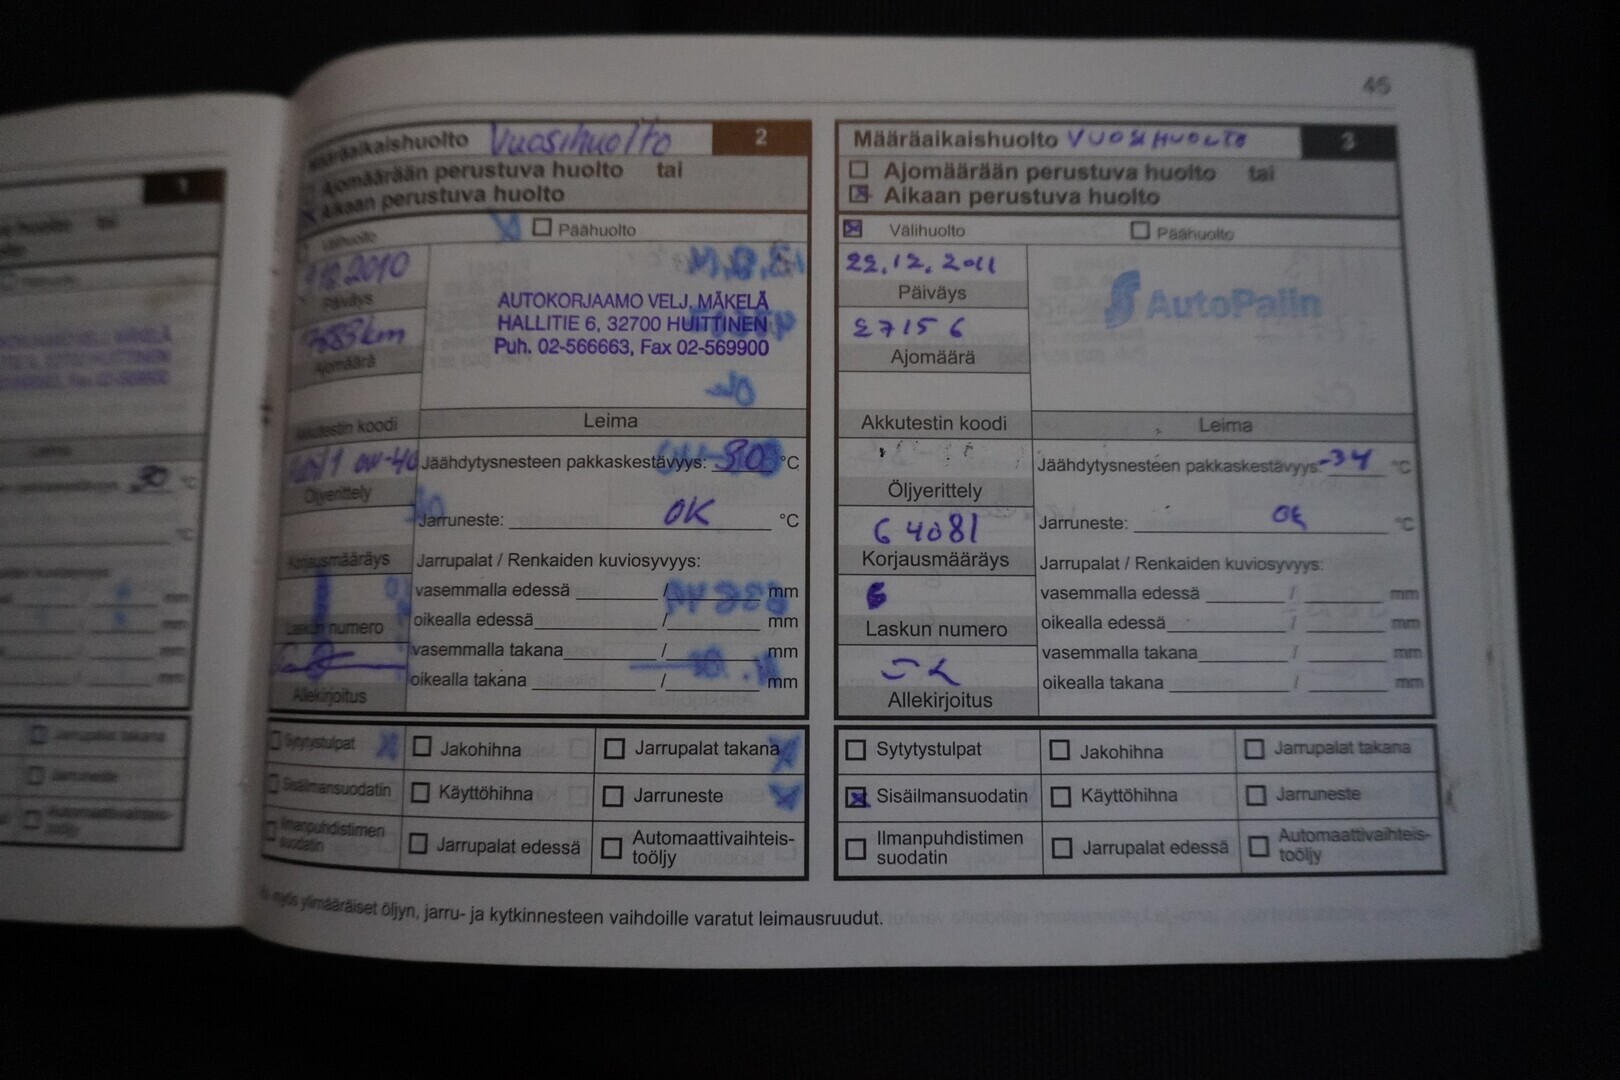 45
1
Määräaikaishuolto Vuosihuolto 2
Ajomäärään perustuva huolto tai
Aikaan perustuva huolto
Välihuolto Päähuolto
2010
Päiväys
AUTOKORJAAMO VELJ. MÄKELÄ
HALLITIE 6, 32700 HUITTINEN
Puh. 02-566663, Fax 02-569900
km
Ajomäärä
Akkutestin koodi Leima
0W-40 Jäähdytysnesteen pakkaskestävyys: -30 °C
Öljyerittely
Jarruneste: OK °C
Korjausmääräys Jarrupalat / Renkaiden kuviosyvyys:
vasemmalla edessä / mm
Laskun numero oikealla edessä / mm
vasemmalla takana / mm
Allekirjoitus oikealla takana / mm
Sytytystulpat Jakohihna Jarrupalat takana
Sisäilmansuodatin Käyttöhihna Jarruneste
Ilmanpuhdistimen suodatin Jarrupalat edessä Automaattivaihteis-
toöljy
myös ylimääräiset öljyn, jarru- ja kytkinnesteen vaihdoille varatut leimausruudut.
Määräaikaishuolto VUOSIHUOLTO 3
Ajomäärään perustuva huolto tai
Aikaan perustuva huolto
Välihuolto Päähuolto
22.12.2011
Päiväys
AutoPalin
27156
Ajomäärä
Akkutestin koodi Leima
Jäähdytysnesteen pakkaskestävyys: -34 °C
Öljyerittely
Jarruneste: OK °C
64081
Korjausmääräys Jarrupalat / Renkaiden kuviosyvyys:
vasemmalla edessä / mm
Laskun numero oikealla edessä / mm
vasemmalla takana / mm
Allekirjoitus oikealla takana / mm
Sytytystulpat Jakohihna Jarrupalat takana
Sisäilmansuodatin Käyttöhihna Jarruneste
Ilmanpuhdistimen
suodatin Jarrupalat edessä Automaattivaihteis-
toöljy